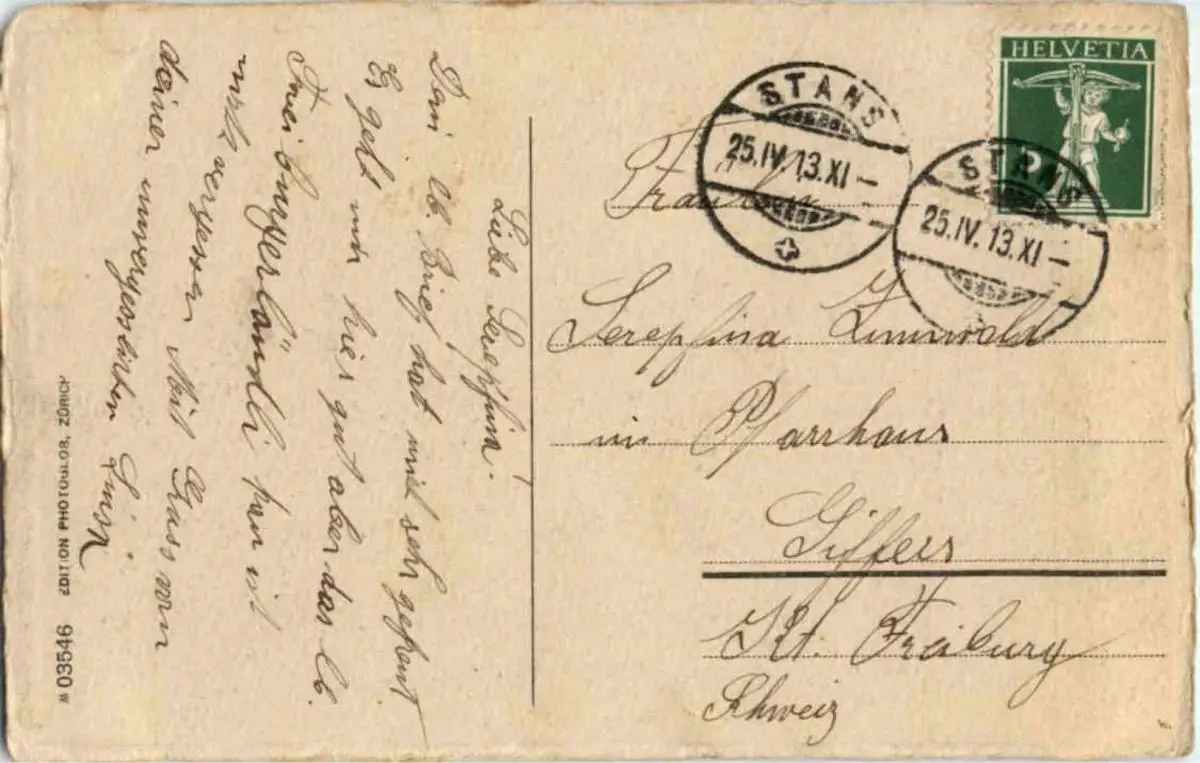 Liebe Serephin!
Dein lb. Brief hat mich sehr gefreut
Es geht mir hier gut aber das lb.
Freiburgerländli kan ich
nicht vergessen. Mit Gruss von
deiner unvergesslichen
EDITION PHOTOGLOB, ZÜRICH
03546
HELVETIA
STANS
25.IV.13.XI–
STANS
25.IV.13.XI–
Fräulein
Serephina
im Pfarrhaus
Giffers
Kt. Freiburg
Schweiz